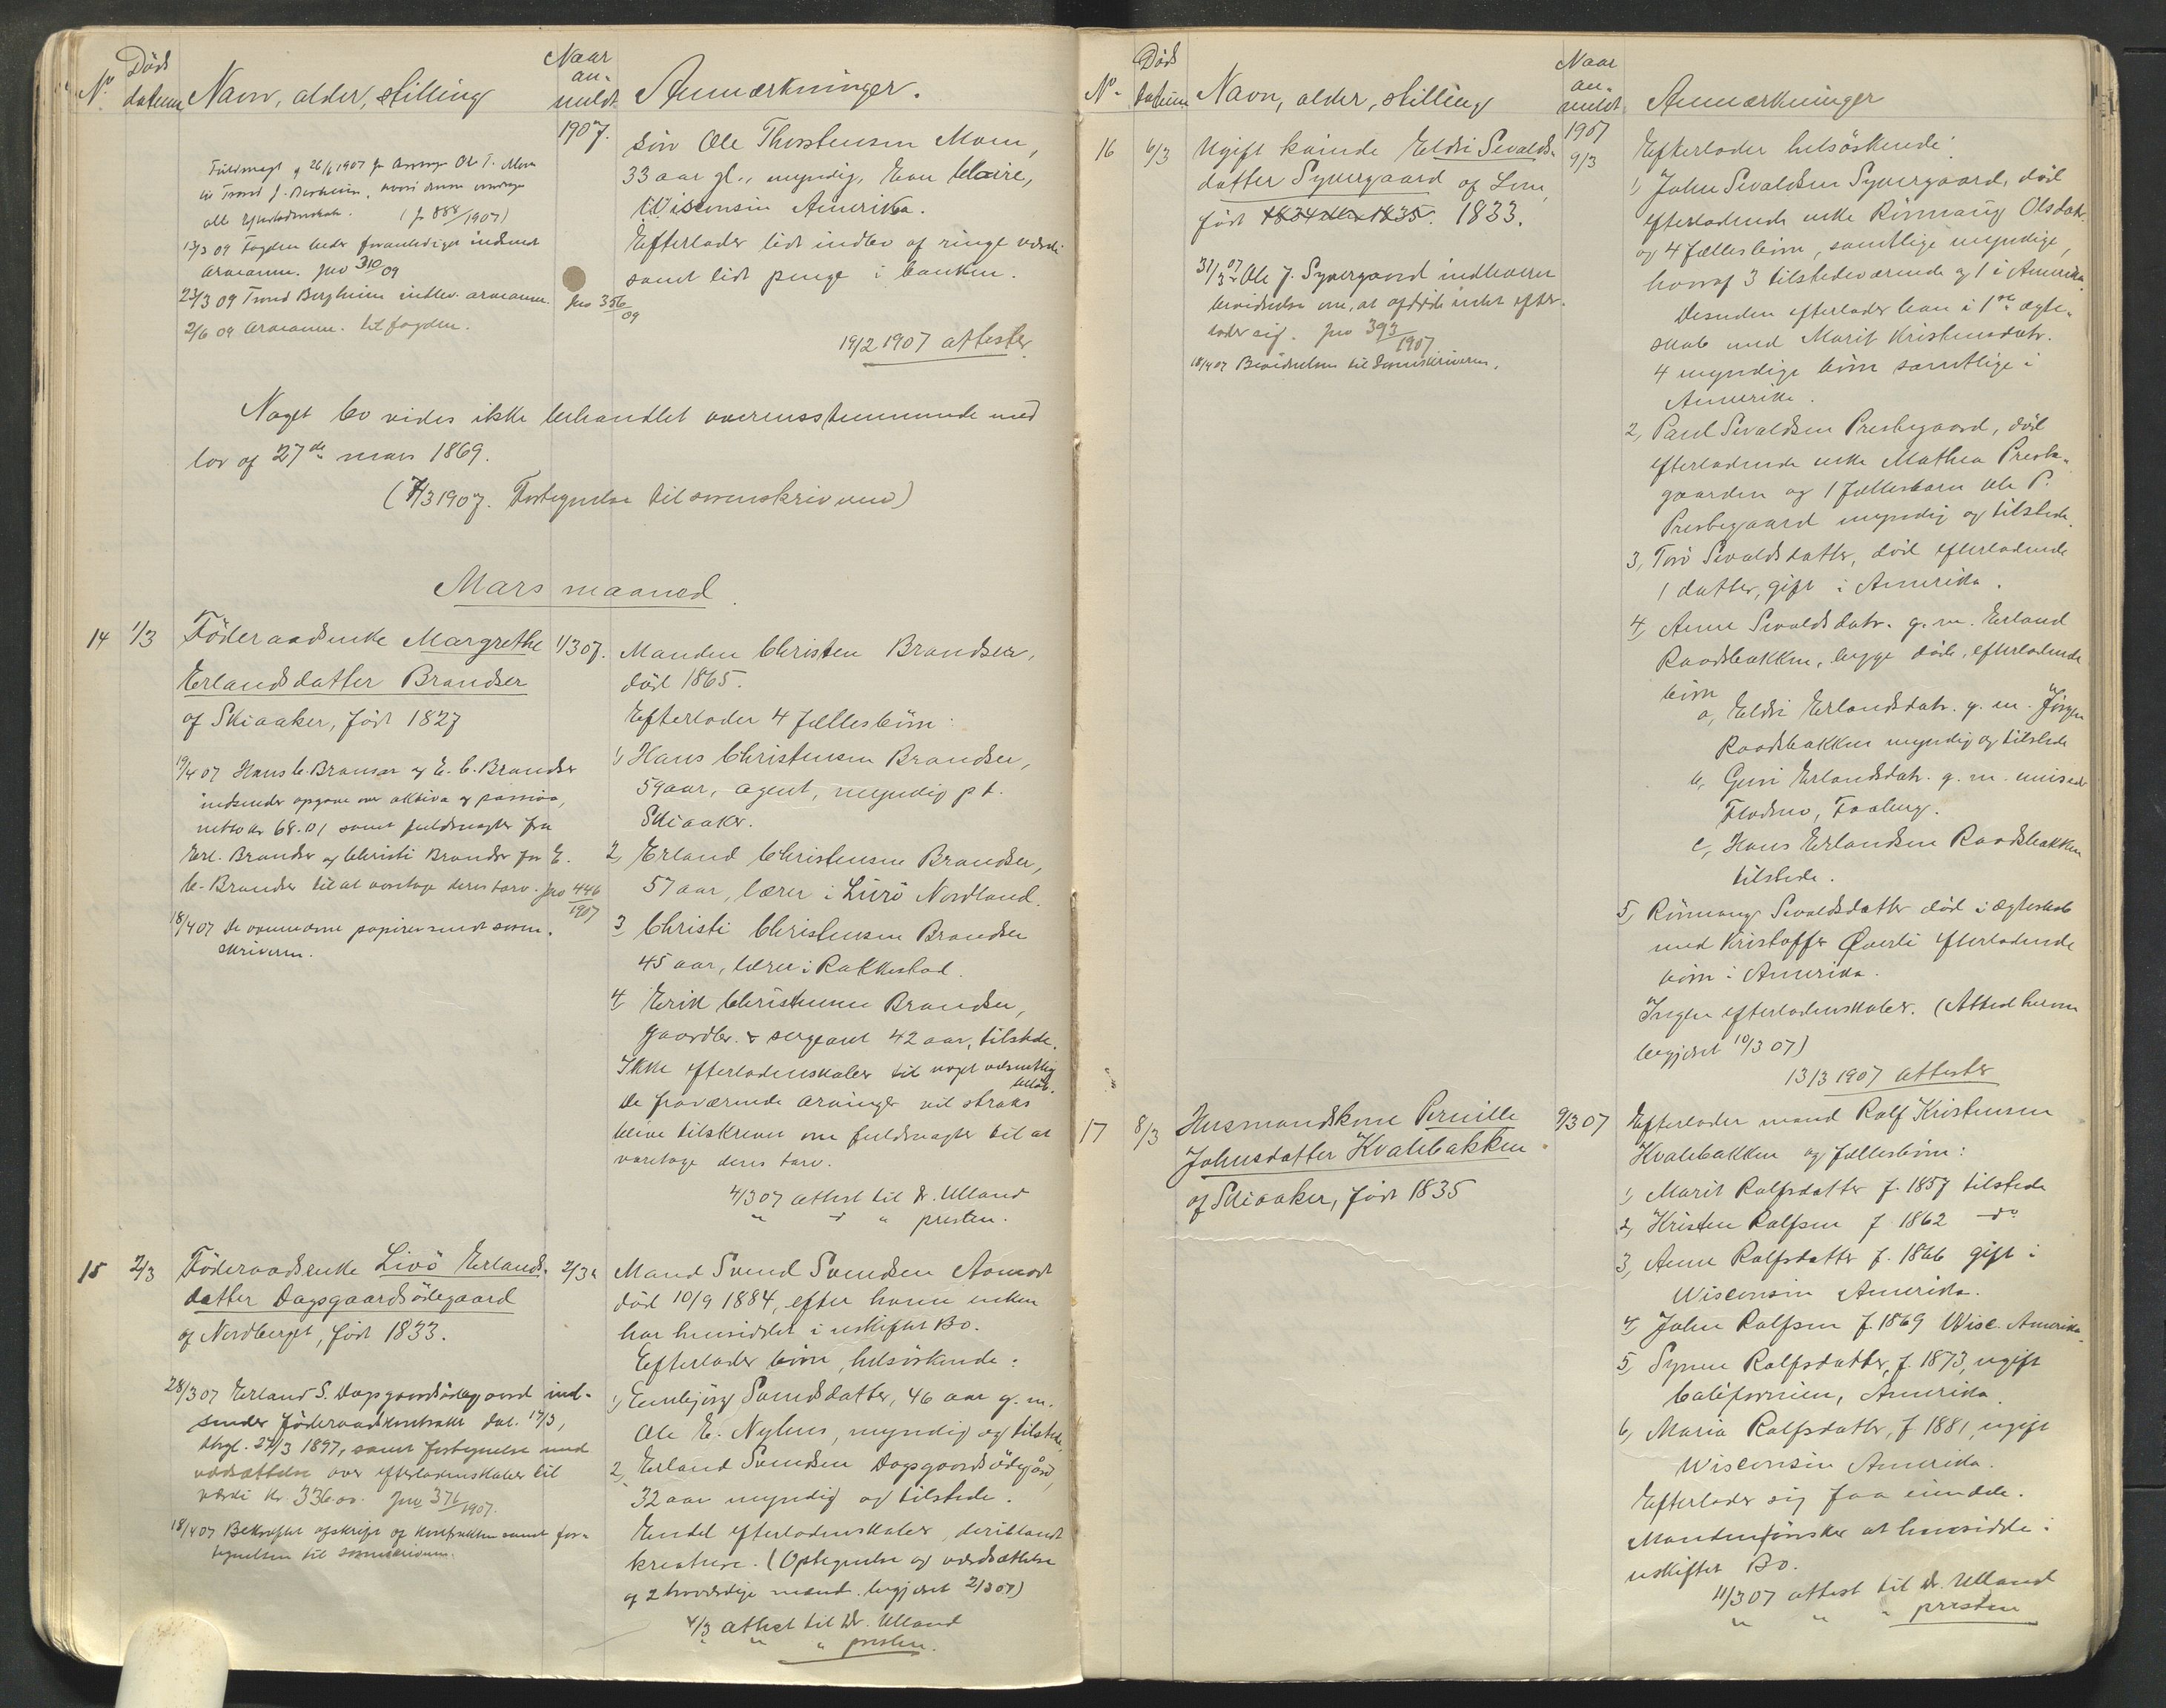 No. Döds datum Navn, alder, stilling Naar an- meldt Anmærkninger.
1907.
Fuldmagt af 26/6 1907 fra Ole T. Mom
til Trond J. Bergheim
all efterladenskab. (jr 888/1907)
13/3 09 Fogden beder foranlediget indsendt
arveanm. jno 310/09
23/3 09 Trond Bergheim indlev. arveanm. jno 356/09
2/6 09 arveanm. til fogden.
sön Ole Thorstensen Mom,
33 aar gl., myndig, Eau Claire,
Wisconsin Amerika.
Efterlader lidt indbo af ringe værdi
samt lidt penge i banken.
19/2 1907 attester
Noget bo vides ikke behandlet overensstemmende med
lov af 27de mars 1869.
(7/3 1907. Fortegnelse til sorenskriveren)
Mars maaned.
14 1/3 Föderaadsenke Margrethe
Erlandsdatter Brandser
af Skiaaker, født 1827
19/4 07 Hans C. Bransar og E. C. Brandser
indsender opgave over aktiva og passiva,
netto kr 68.01 samt fuldmagter fra
Erl. Brandser og Christi Brandser for E.
C. Brandser til at varetage deres tarv. jno 446/1907
18/4 07 De ovennævnte papirer sendt soren-
skriveren.
1/3 07. Manden Christen Brandser,
död 1865.
Efterlader 4 fællesbörn:
1, Hans Christensen Brandser,
59 aar, agent, myndig p.t.
Skiaaker.
2, Erland Christensen Brandser,
57 aar, lærer i Lurö Nordland.
3 Christi Christensen Brandser
45 aar, lærer i Rakkestad.
4, Erik Christensen Brandser,
gaardbr. & sergeant 42 aar, tilstede.
Ikke efterladenskaber til noget væsentlig
beløb.
De fraværende arvinger vil straks
blive tilskrevne om fuldmagter til at
varetage deres tarv.
4/3 07 attest til Dr. Ulland
" " " presten.
15 2/3 Föderaadsenke Livö Erlands-
datter Dagsgaardsödegaard
af Nordberget, født 1833.
28/3 07 Erland S. Dagsgaardsödegaard ind-
sender föderaadskontrakt dat. 17/3,
thgl. 24/3 1897, samt fortegnelse med
værdsættelse over efterladenskaber til
værdi kr. 336.00. jno 376/1907.
18/4 07 Bekræftet afskrift af kontrakten samt for-
tegnelsen til sorenskriveren.
2/3 " Mand Svend Svendsen Aamodt
död 10/9 1884, efter ham enken
har hensiddet i uskiftet Bo.
Efterlader börn, helsöskende:
1, Embjörg Svendsdatter, 46 aar g. m.
Ole E. Nyhus, myndig og tilstede,
2, Erland Svendsen Dagsgaardsödegård,
32 aar myndig og tilstede.
Endel efterladenskaber, deriblandt
kreature. (Optegnelse og værdsættelse
af 2 troværdige mænd. begjært 2/3 07)
4/3 attest til Dr. Ulland
" " " presten.
No. Döds datum Navn, alder, stilling Naar an- meldt Anmærkninger
16 6/3 Ugift kvinde Eldri Sevalds-
datter Syvergaard af Lom,
født 1834 eller 1835. 1833.
31/3 07 Ole J. Syvergaard indleverer
bevidnelse om, at afdøde intet efter-
lader sig. jno 393/1907
18/4 07 Bevidnelsen til sorenskriveren.
1907
9/3
Efterlader helsöskende:
1, John Sevaldsen Syvergaard, död
efterladende enke Rönnaug Olsdatr.
og 4 fællesbörn, samtlige myndige,
hvoraf 3 tilstedeværende og 1 i Amerika.
Desuden efterlader han i 1ste ægte-
skab med Marit Kristensdatr.
4 myndige börn samtlige i
Amerika.
2, Paul Sevaldsen Prestegaard, död
efterladende enke Mathea Preste-
gaarden og 1 fællesbarn Ole P.
Prestegaard myndig og tilstede.
3, Torö Sevaldsdatter, död efterladende
1 datter, gift i Amerika.
4, Anne Sevaldsdatr. g. m. Erland
Raadsbakken, begge döde, efterladende
börn
a, Eldri Erlandsdatr. g. m. Jörgen
Raadsbakken myndig og tilstede
b, Guri Erlandsdatr. g. m.
Flodmo, Faaberg.
c, Hans Erlandsen Raadsbakken
tilstede.
5, Rönnaug Sevaldsdatter död i ægteskab
med Kristoffer Øverli efterladende
börn i Amerika.
Ingen efterladenskaber. (Attest herom
begjæret 10/3 07)
13/3 1907 attester
17 8/3 Husmandskone Pernille
Johnsdatter Kvalebakken
af Skiaaker, født 1835
9/3 07 Efterlader mand Rolf Kristensen
Kvalebakken og fællesbörn:
1, Marit Rolfsdatter f. 1857 tilstede
2, Kristen Rolfsen f. 1862 do
3, Anne Rolfsdatter f. 1866 gift i
Wisconsin Amerika.
4, John Rolfsen f. 1869 Wisc. Amerika.
5, Synne Rolfsdatter, f. 1873, ugift
Californien, Amerika.
6, Maria Rolfsdatter, f 1881, ugift
Wisconsin Amerika.
Efterlader sig faa eiendele.
Manden ønsker at hensidde i
uskiftet Bo.
11/3 07 attest til Dr. Ulland
" " " presten